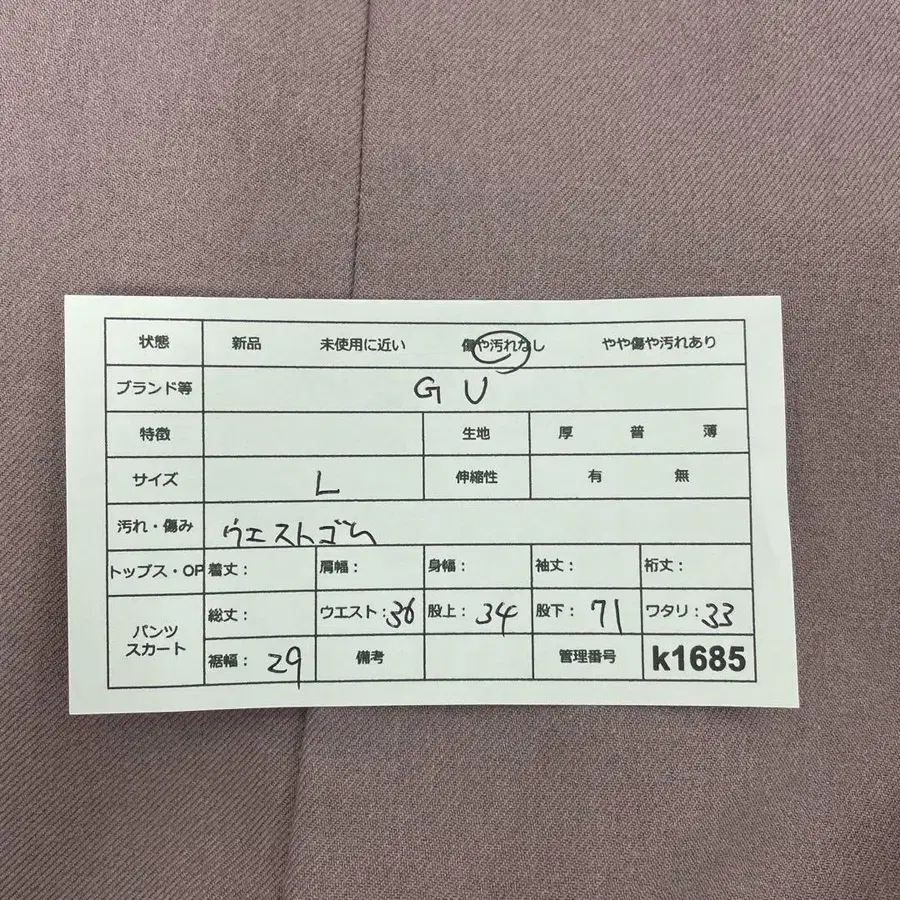 状態 新品 未使用に近い 傷や汚れなし やや傷や汚れあり
ブランド等 GU
特徴 生地 厚 普 薄
サイズ L 伸縮性 有 無
汚れ・傷み ウエストゴム
トップス・OP 着丈: 肩幅: 身幅: 袖丈: 裄丈:
パンツ スカート 総丈: ウエスト:36 股上:34 股下:71 ワタリ:33
裾幅:29 備考 管理番号 k1685